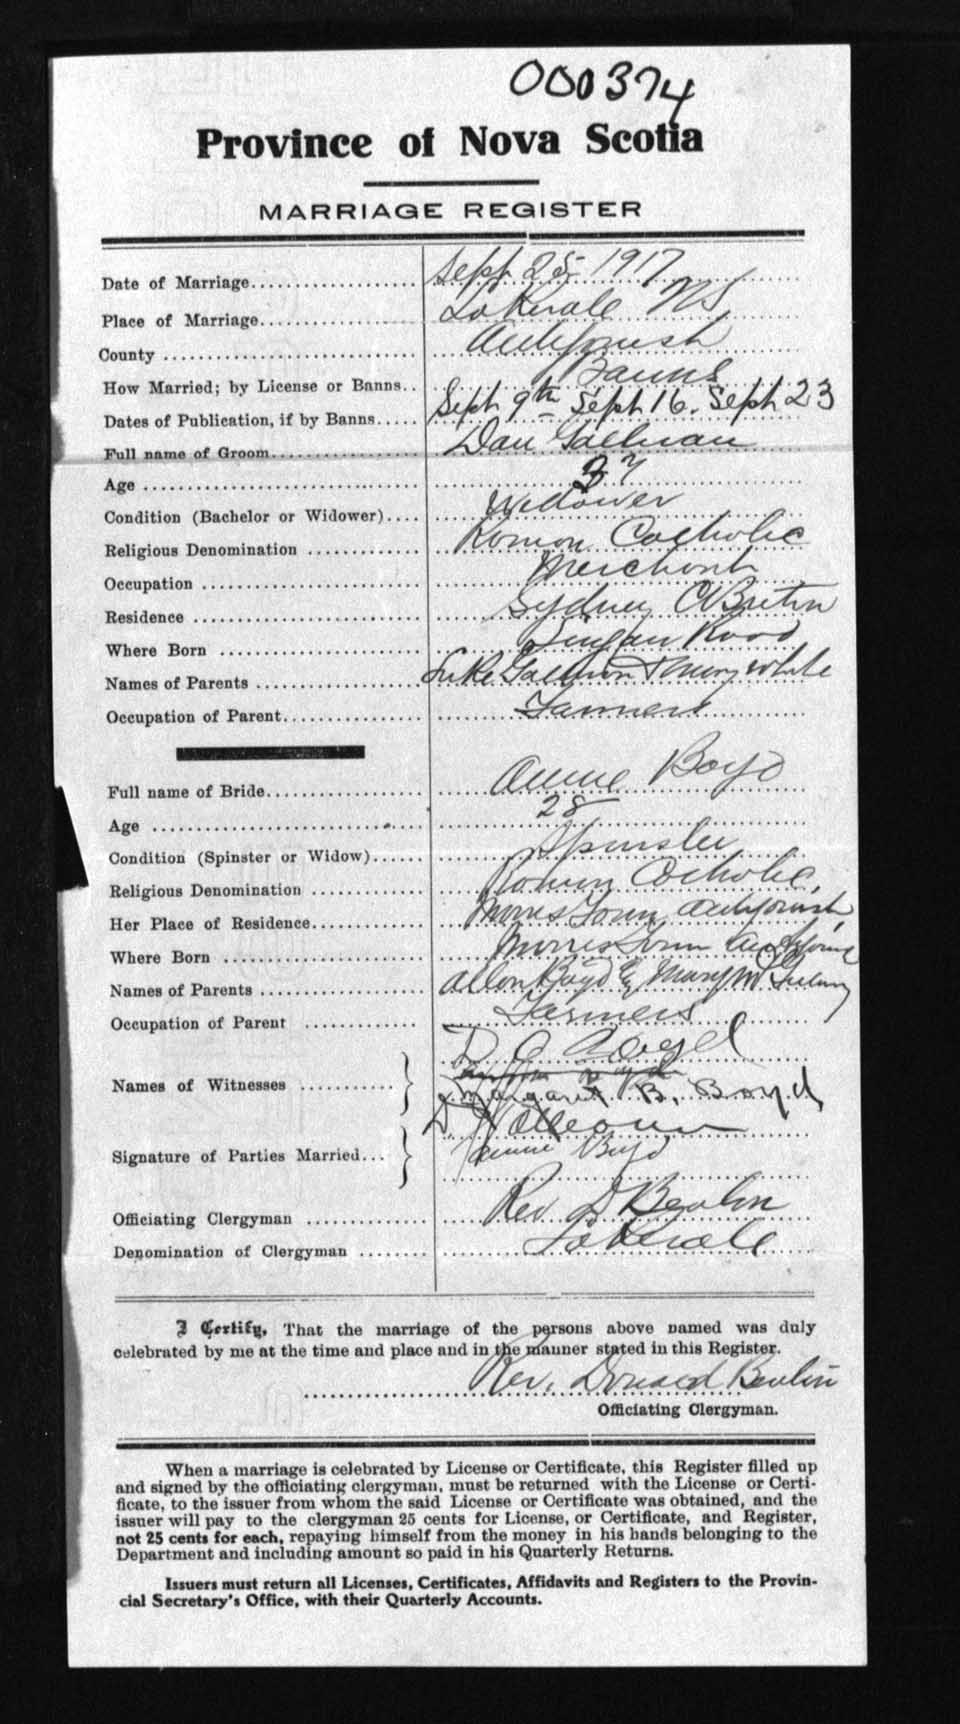 000374
Province of Nova Scotia
MARRIAGE REGISTER
Date of Marriage Sept 25 1917
Place of Marriage Lakevale NS
County Antigonish
How Married; by License or Banns Banns
Dates of Publication, if by Banns Sept 9th Sept 16. Sept 23
Full name of Groom Dan
Age 37
Condition (Bachelor or Widower) Widower
Religious Denomination Roman Catholic
Occupation Merchant
Residence Sydney C Breton
Where Born Lingan Road
Names of Parents Luke & Mary White
Occupation of Parent Farmers
Full name of Bride Annie Boyd
Age 28
Condition (Spinster or Widow) Spinster
Religious Denomination Roman Catholic,
Her Place of Residence Morristown Antigonish
Where Born Morristown
Names of Parents Allan Boyd & Mary
Occupation of Parent Farmers
D
Names of Witnesses Margaret B. Boyd
D
Signature of Parties Married Annie Boyd
Officiating Clergyman Rev D
Denomination of Clergyman Lakevale
I Certify, That the marriage of the persons above named was duly
celebrated by me at the time and place and in the manner stated in this Register.
Rev. Donald
Officiating Clergyman.
When a marriage is celebrated by License or Certificate, this Register filled up
and signed by the officiating clergyman, must be returned with the License or Certi-
ficate, to the issuer from whom the said License or Certificate was obtained, and the
issuer will pay to the clergyman 25 cents for License, or Certificate, and Register,
not 25 cents for each, repaying himself from the money in his hands belonging to the
Department and including amount so paid in his Quarterly Returns.
Issuers must return all Licenses, Certificates, Affidavits and Registers to the Provin-
cial Secretary's Office, with their Quarterly Accounts.